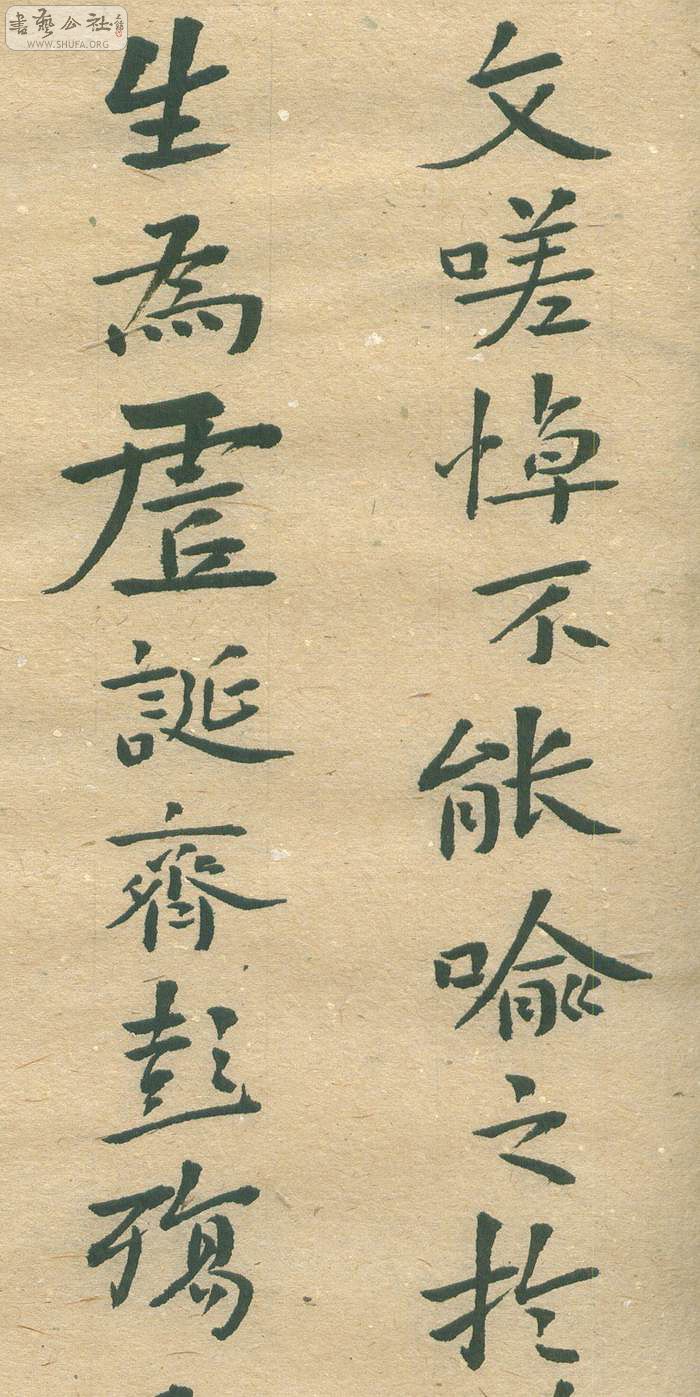 文嗟悼不能喻之於
生為虛誕齊彭殤
書藝公社
WWW.SHUFA.ORG